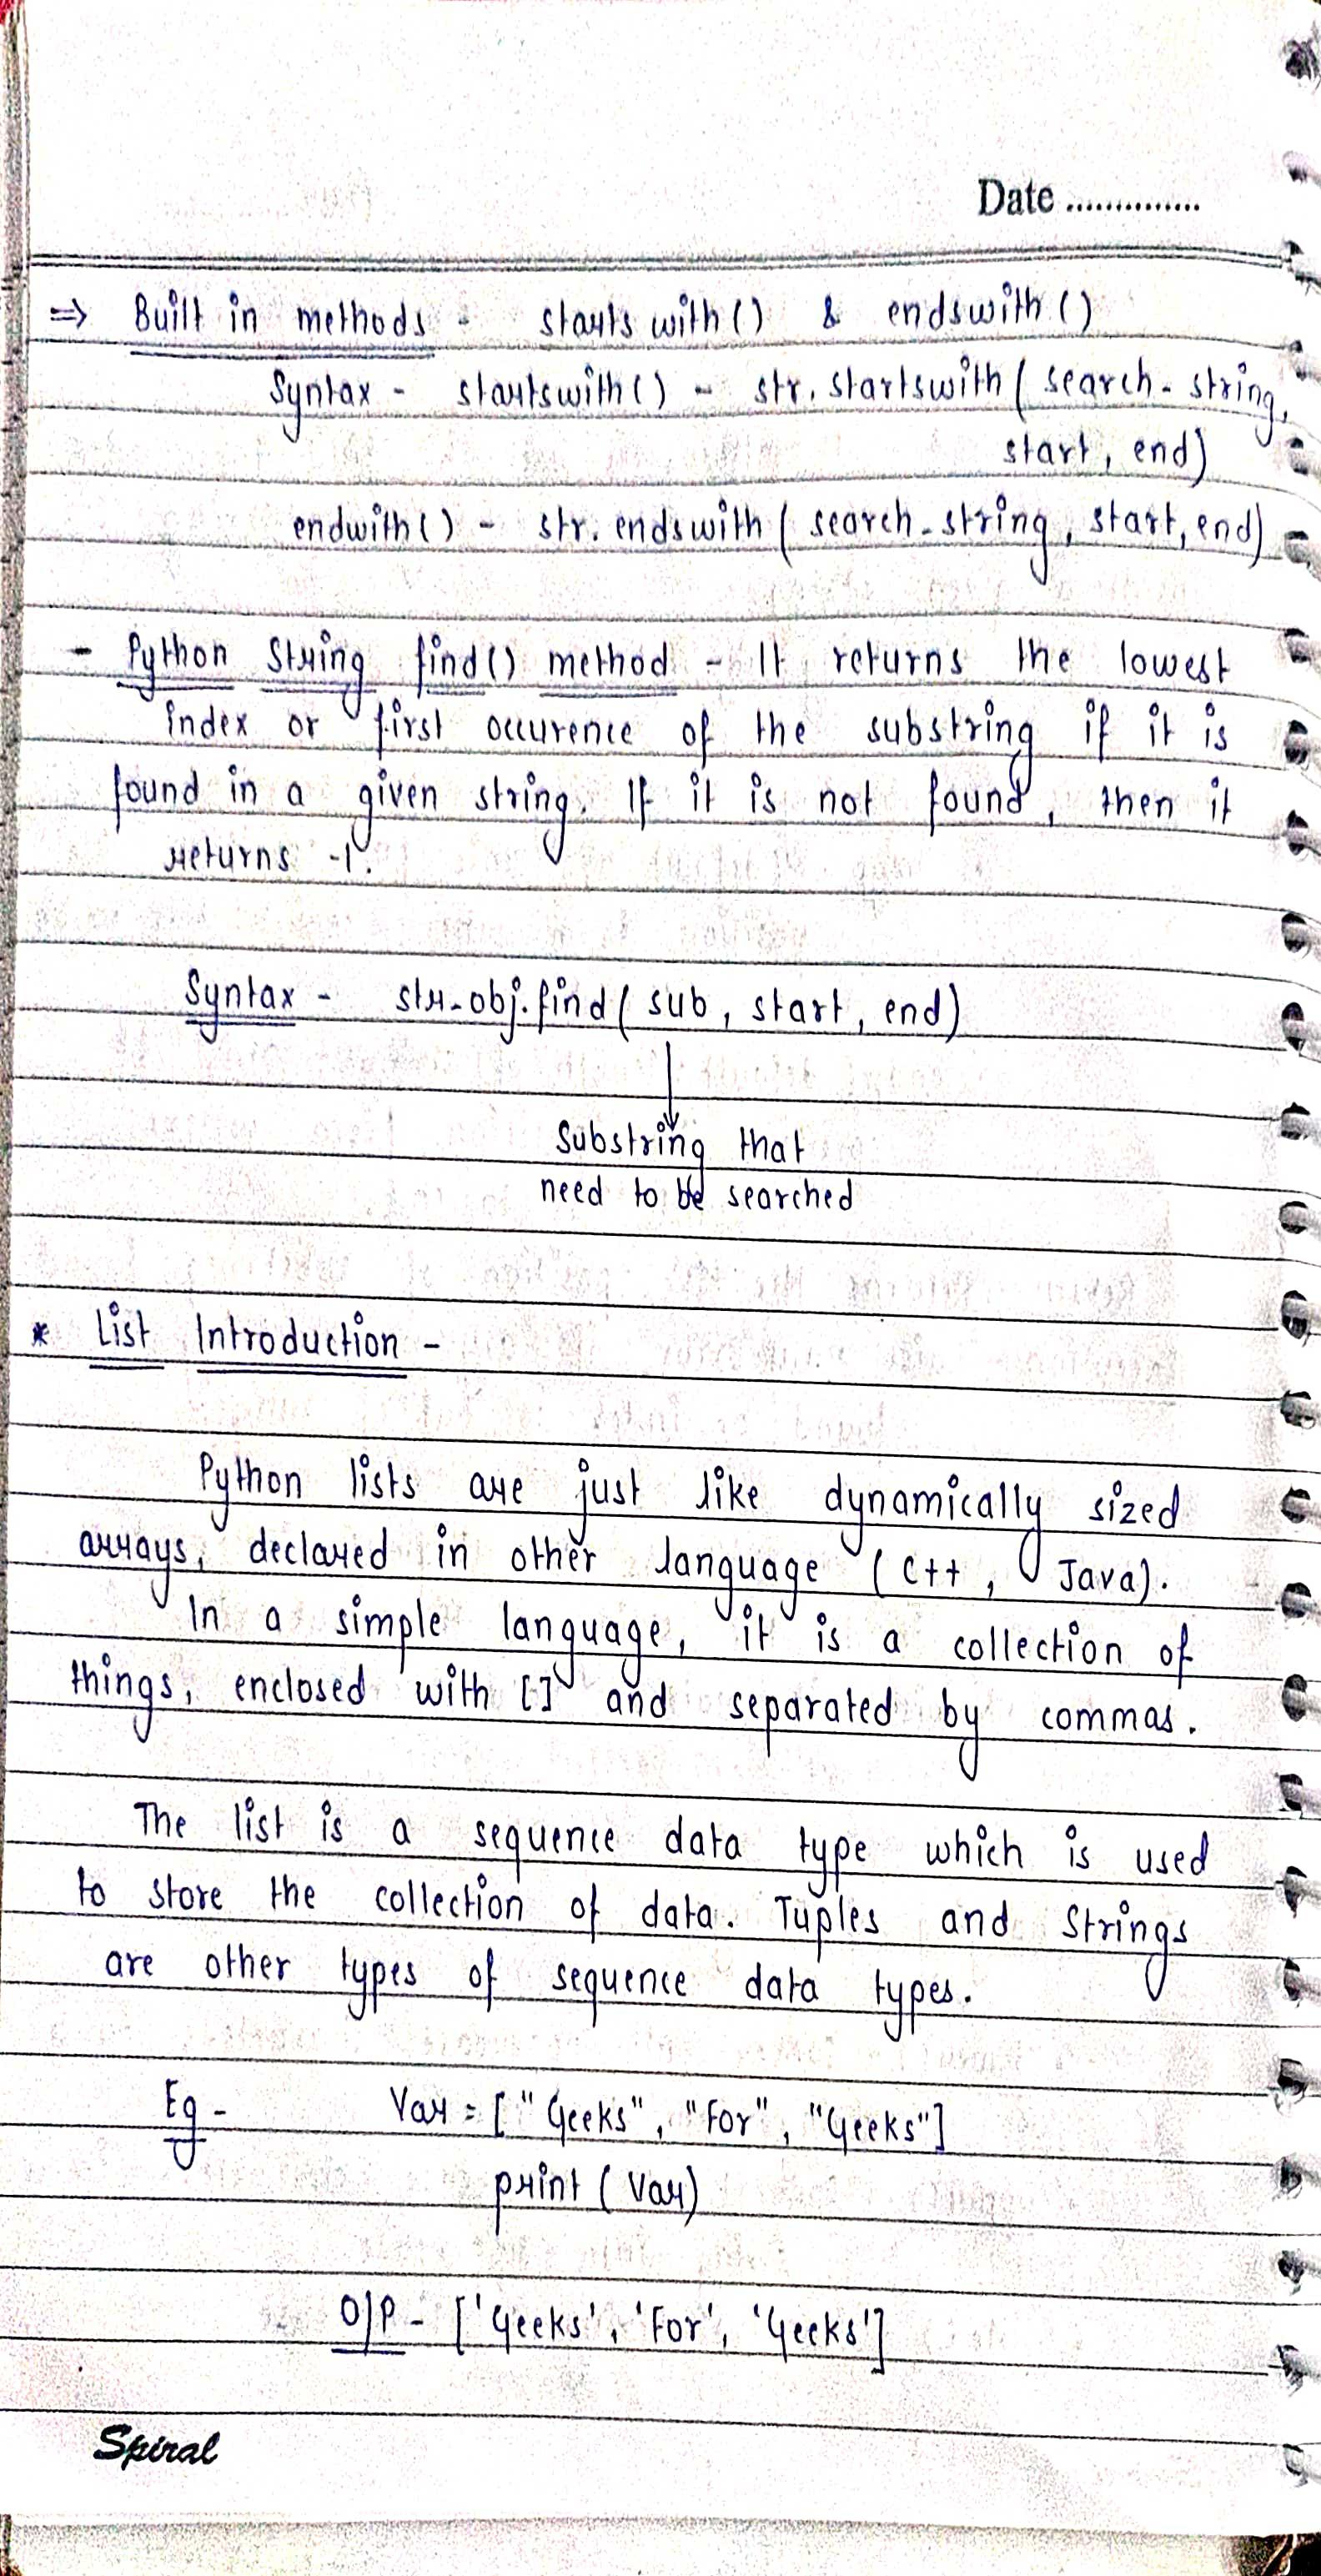 Date ..............
⇒ Built in methods - starts with () & endswith ()
Syntax - startswith () - str. startswith ( search_string,
start, end)
endwith () - str. endswith ( search_string, start, end)
- Python String find() method - It returns the lowest
index or first occurence of the substring if it is
found in a given string. If it is not found, then it
returns -1.
Syntax - str_obj.find ( sub, start, end)
↓
Substring that
need to be searched
* List Introduction -
Python lists are just like dynamically sized
arrays, declared in other language (C++, Java).
In a simple language, it is a collection of
things, enclosed with [] and separated by commas.
The list is a sequence data type which is used
to store the collection of data. Tuples and Strings
are other types of sequence data types.
Eg - Var = [ "Geeks", "For", "Geeks"]
print ( Var)
O/P - ['Geeks', 'For', 'Geeks']
Spiral